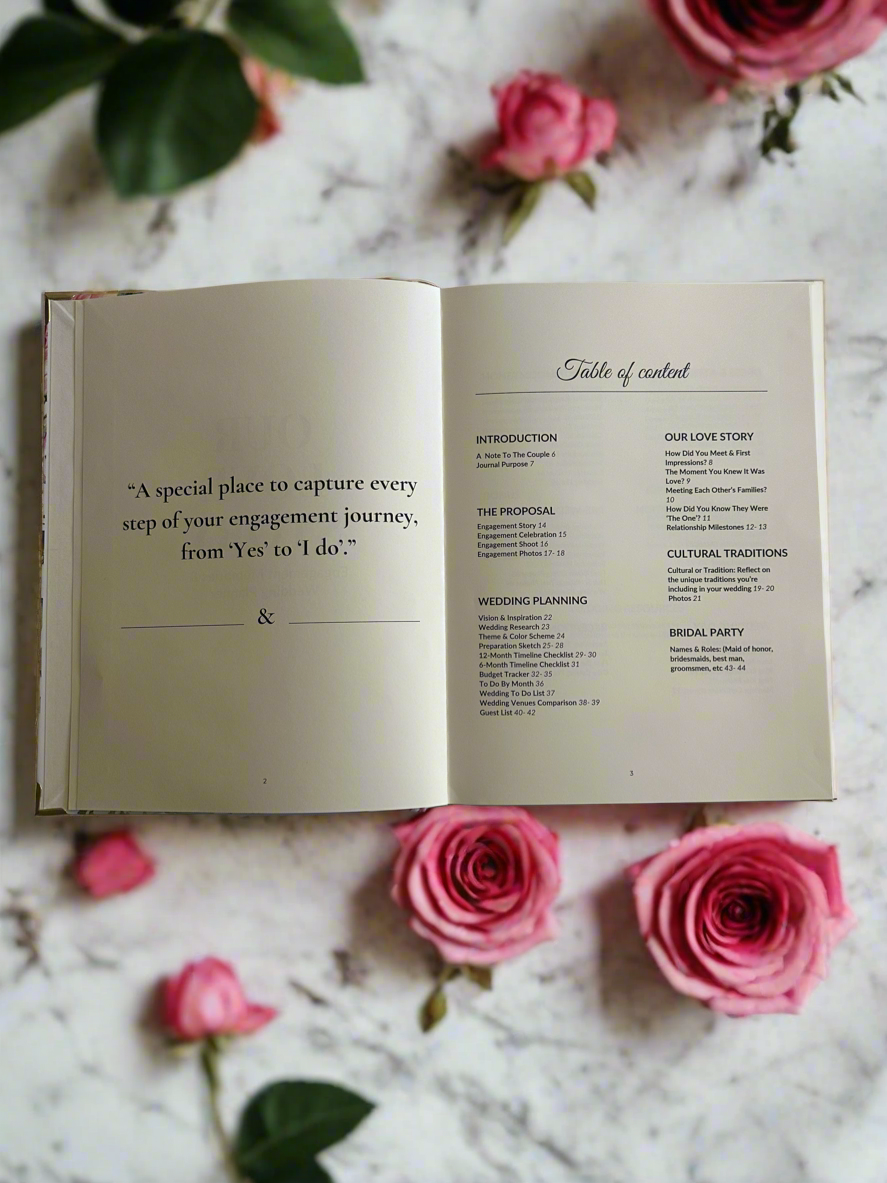 “A special place to capture every
step of your engagement journey,
from ‘Yes’ to ‘I do’.”
&
2
Table of content
INTRODUCTION
A Note To The Couple 6
Journal Purpose 7
THE PROPOSAL
Engagement Story 14
Engagement Celebration 15
Engagement Shoot 16
Engagement Photos 17- 18
WEDDING PLANNING
Vision & Inspiration 22
Wedding Research 23
Theme & Color Scheme 24
Preparation Sketch 25- 28
12-Month Timeline Checklist 29- 30
6-Month Timeline Checklist 31
Budget Tracker 32- 35
To Do By Month 36
Wedding To Do List 37
Wedding Venues Comparison 38- 39
Guest List 40- 42
OUR LOVE STORY
How Did You Meet & First
Impressions? 8
The Moment You Knew It Was
Love? 9
Meeting Each Other's Families?
10
How Did You Know They Were
'The One'? 11
Relationship Milestones 12- 13
CULTURAL TRADITIONS
Cultural or Tradition: Reflect on
the unique traditions you're
including in your wedding 19- 20
Photos 21
BRIDAL PARTY
Names & Roles: (Maid of honor,
bridesmaids, best man,
groomsmen, etc 43- 44
3